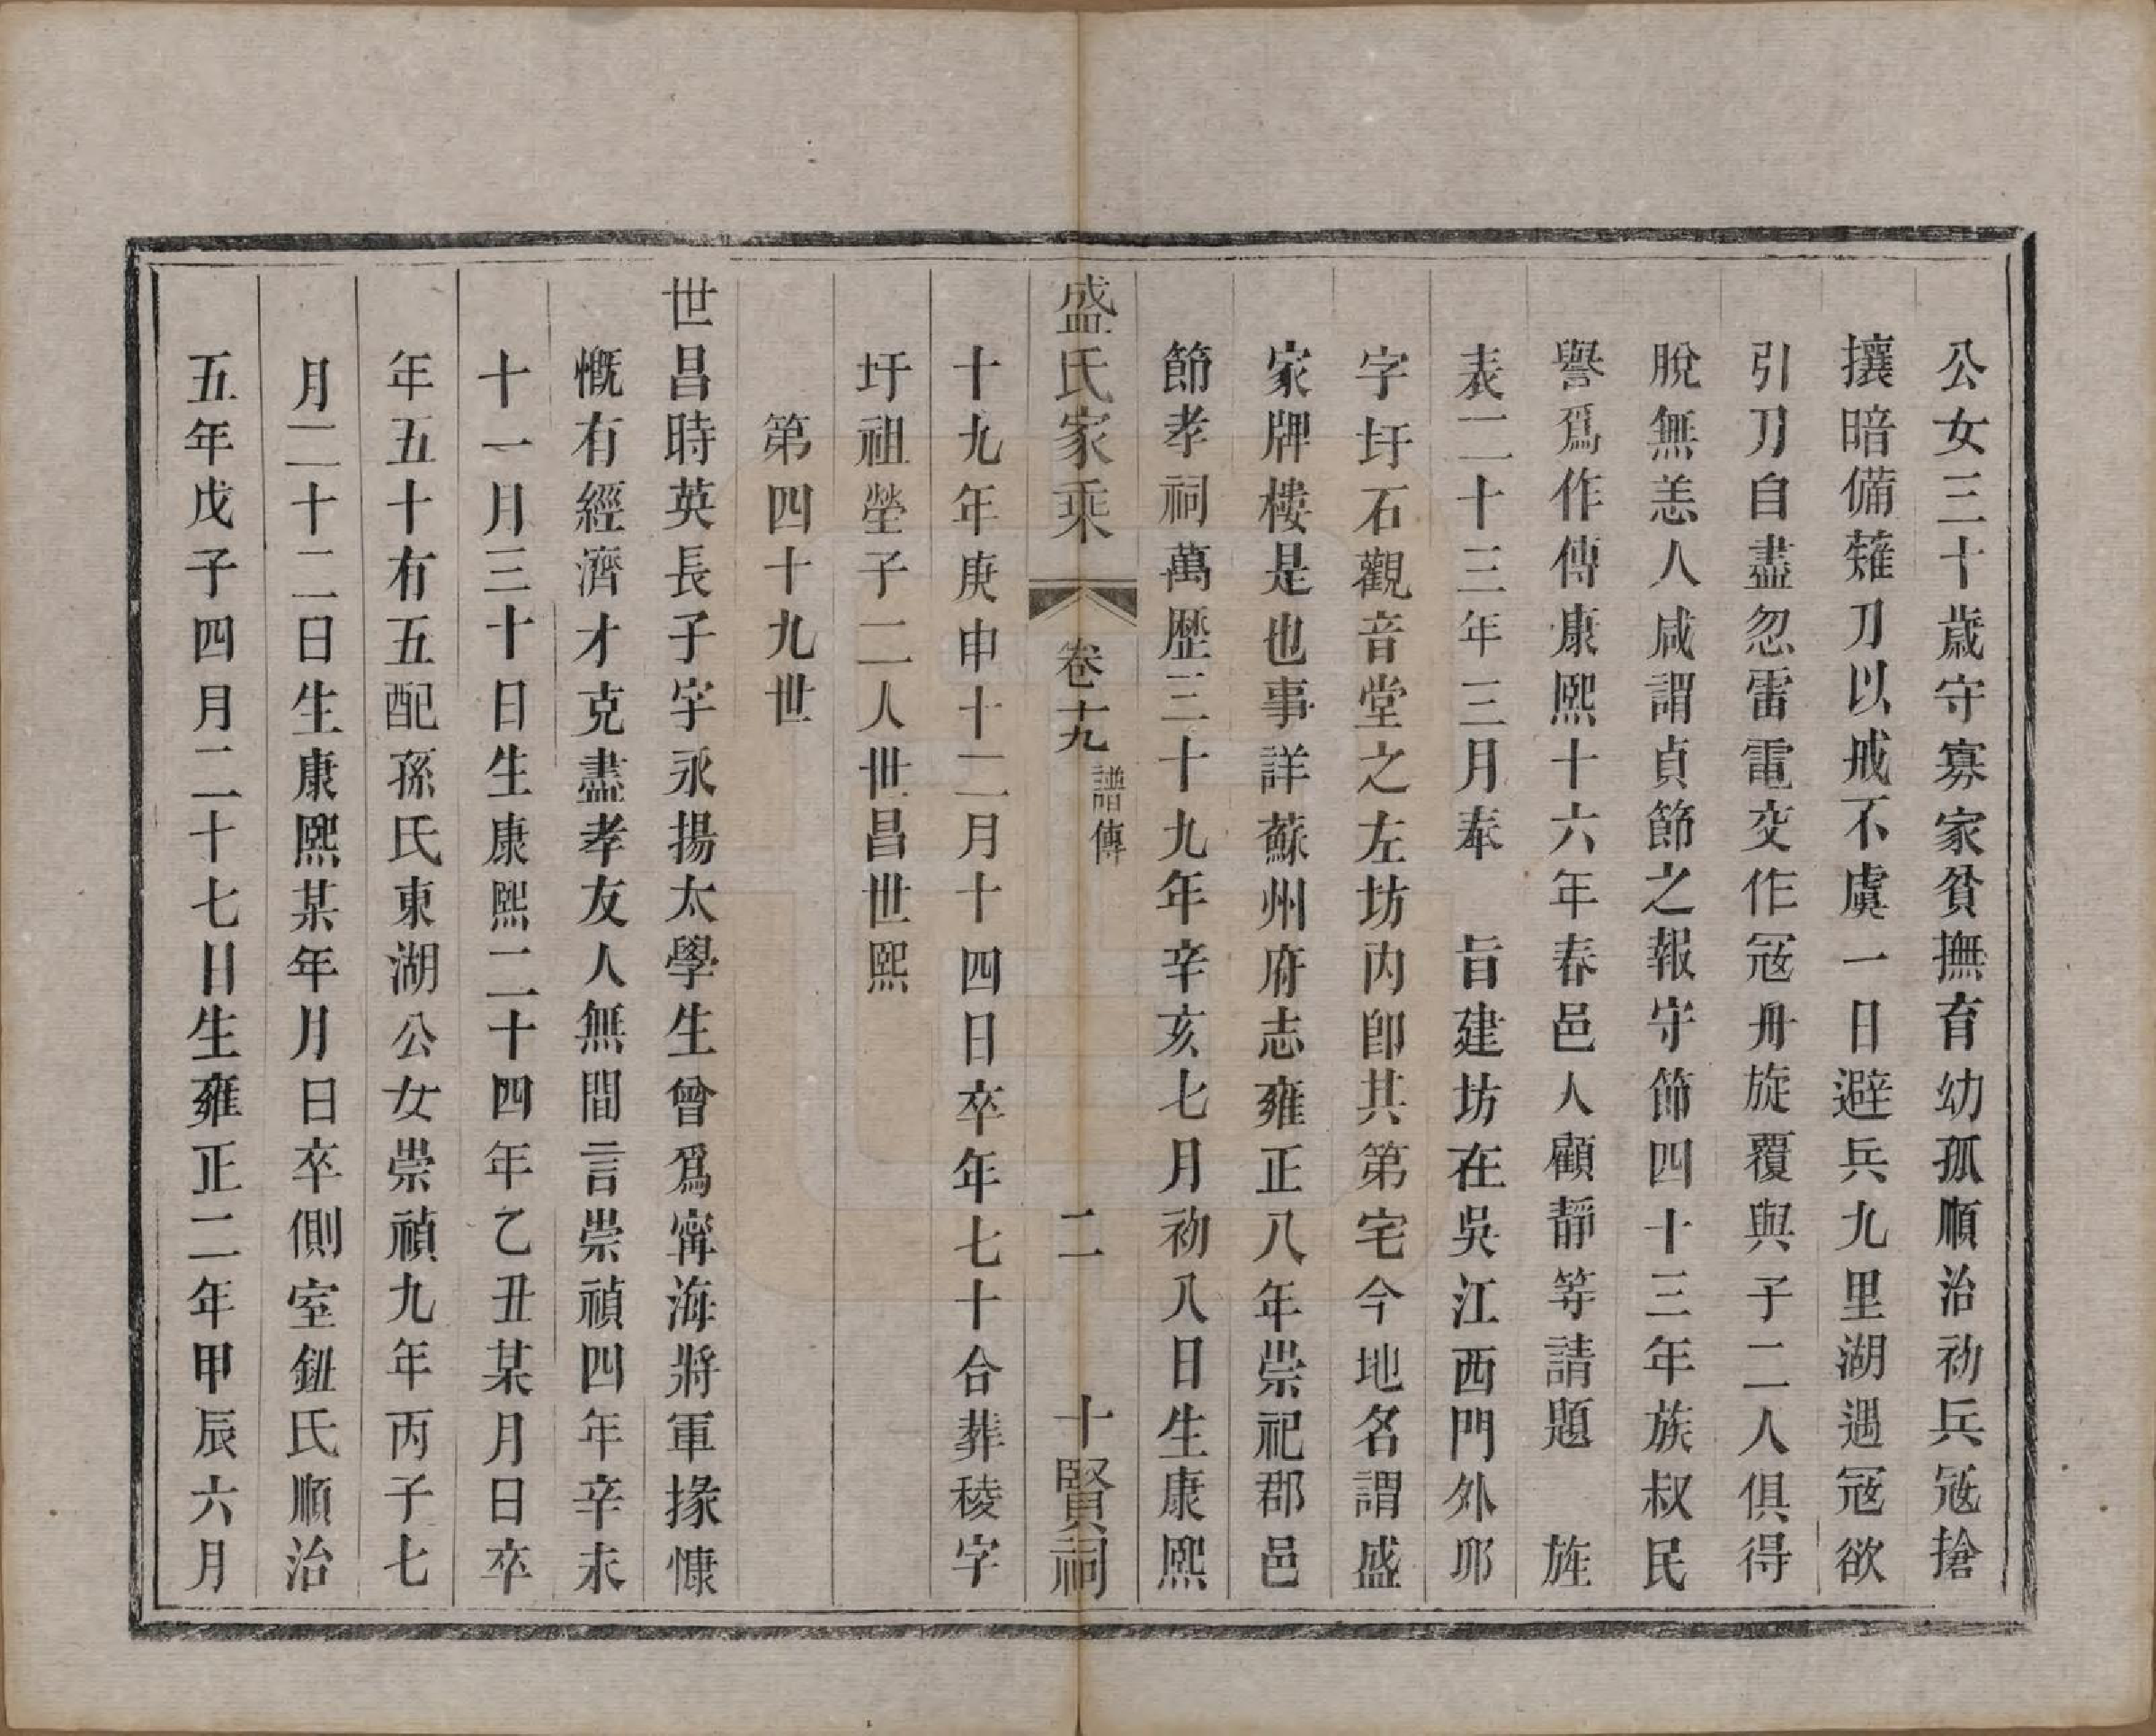 公女三十歲守寡家貧撫育幼孤順治初兵寇搶
攘暗備薙刀以戒不虞一日避兵九里湖遇寇欲
引刀自盡忽雷電交作寇舟旋覆與子二人俱得
脫無恙人咸謂貞節之報守節四十三年族叔民
譽爲作傳康熙十六年春邑人顧靜等請題　旌
表二十三年三月奉　旨建坊在吳江西門外邢
字圩石觀音堂之左坊內卽其第宅今地名謂盛
家牌樓是也事詳蘇州府志雍正八年崇祀郡邑
節孝祠萬歷三十九年辛亥七月初八日生康熙
盛氏家乘　卷十九　譜傳　二　十賢祠
十九年庚申十二月十四日卒年七十合葬稜字
圩祖塋子二人世昌世熙
第四十九世
世昌時英長子字永揚太學生曾爲寧海將軍掾慷
慨有經濟才克盡孝友人無間言崇禎四年辛未
十一月三十日生康熙二十四年乙丑某月日卒
年五十有五配孫氏東湖公女崇禎九年丙子七
月二十二日生康熙某年月日卒側室鈕氏順治
五年戊子四月二十七日生雍正二年甲辰六月